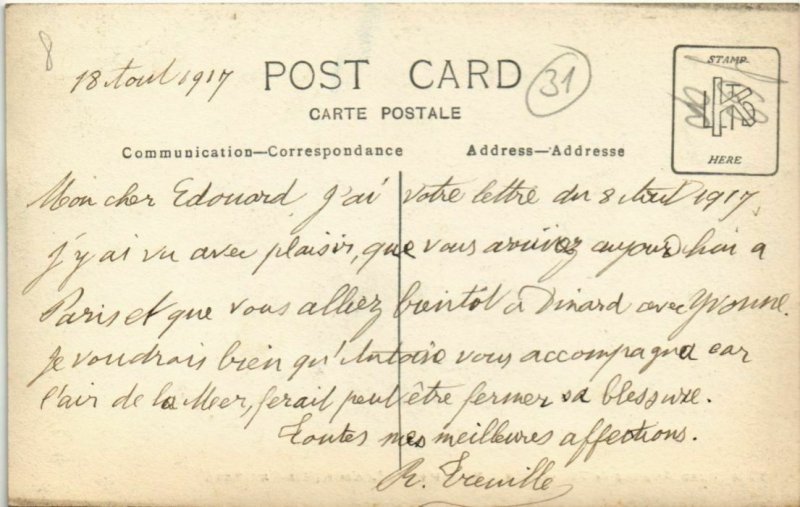 8
18 Aout 1917 POST CARD 31
CARTE POSTALE
STAMP
HERE
Communication—Correspondance Address—Addresse
Mon cher Edouard J'ai votre lettre du 8 Aout 1917
j'y ai vu avec plaisir, que vous arrivez aujourdhui a
Paris et que vous alliez bientot a Dinard avec Yvonne.
Je voudrais bien qu'Antoine vous accompagna car
l'air de la Meer, ferait peut être fermer sa blessure.
Toutes mes meilleures affections.
R. Treuille